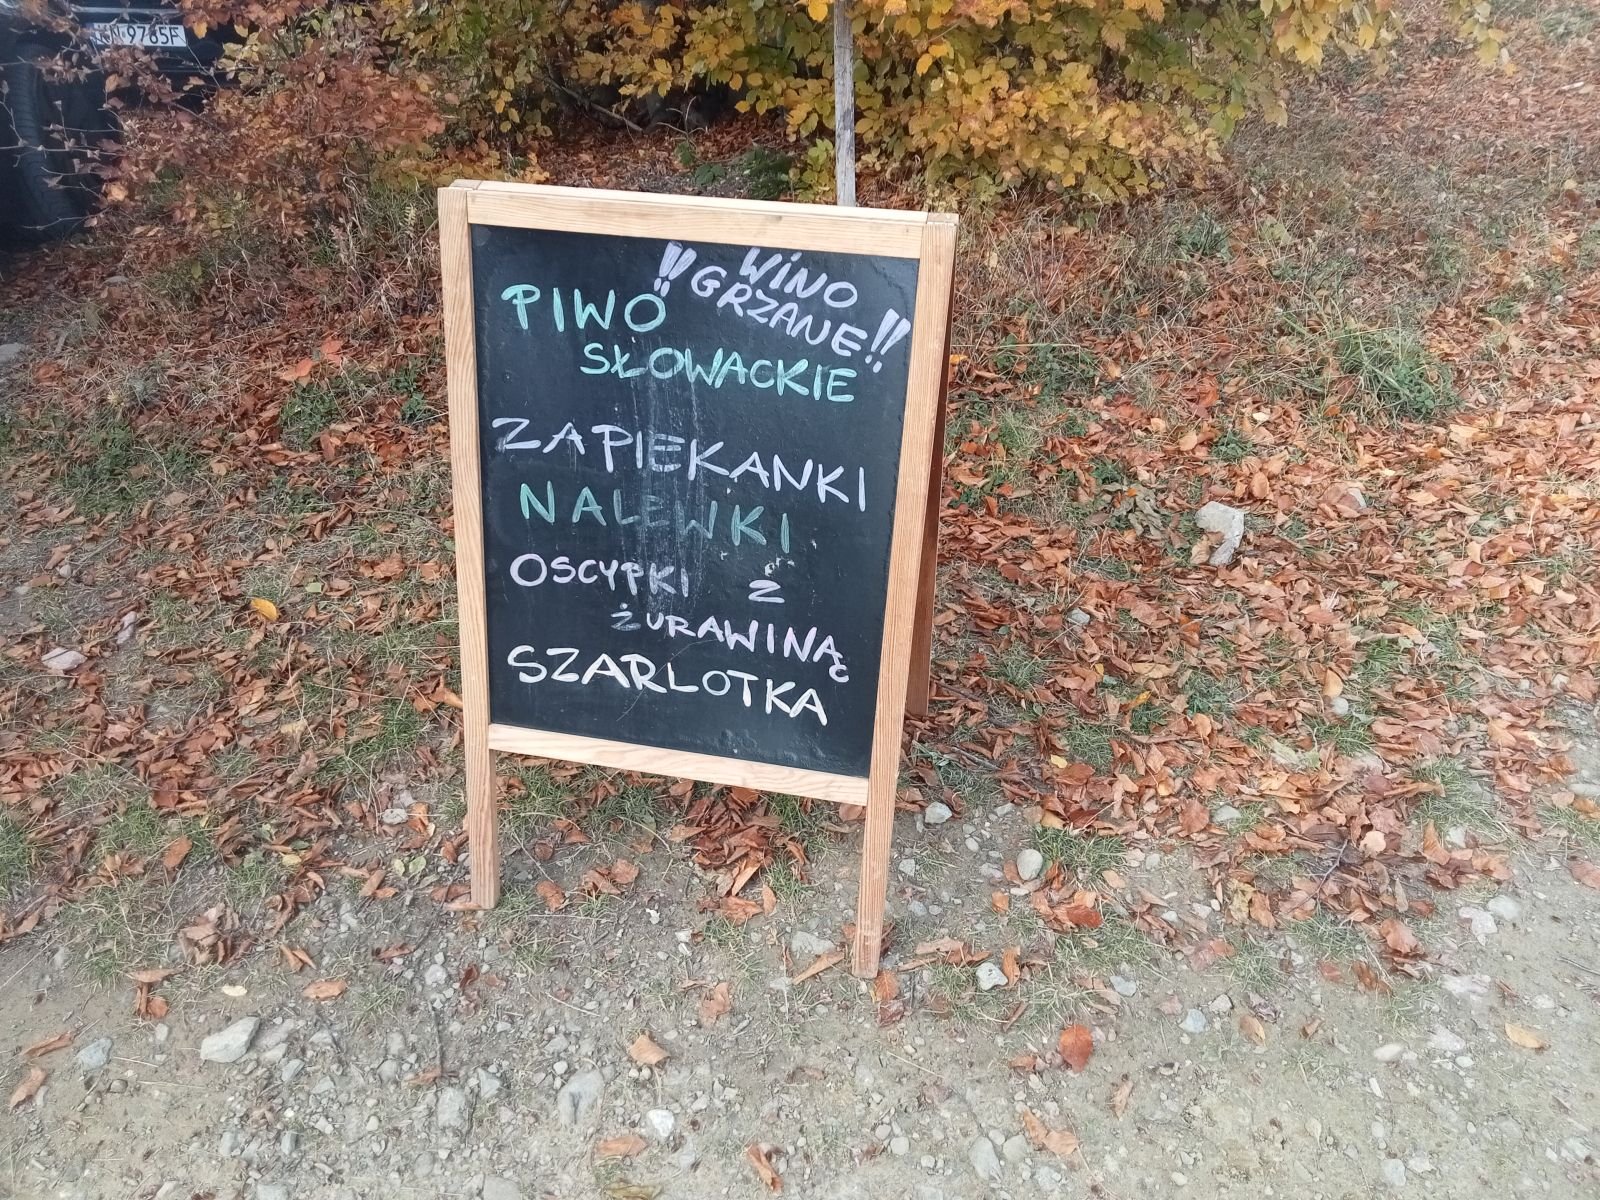 !! WINO
GRZANE!!
PIWO
SŁOWACKIE
ZAPIEKANKI
NALEWKI
OSCYPKI Z
ŻURAWINĄ
SZARLOTKA
9765F